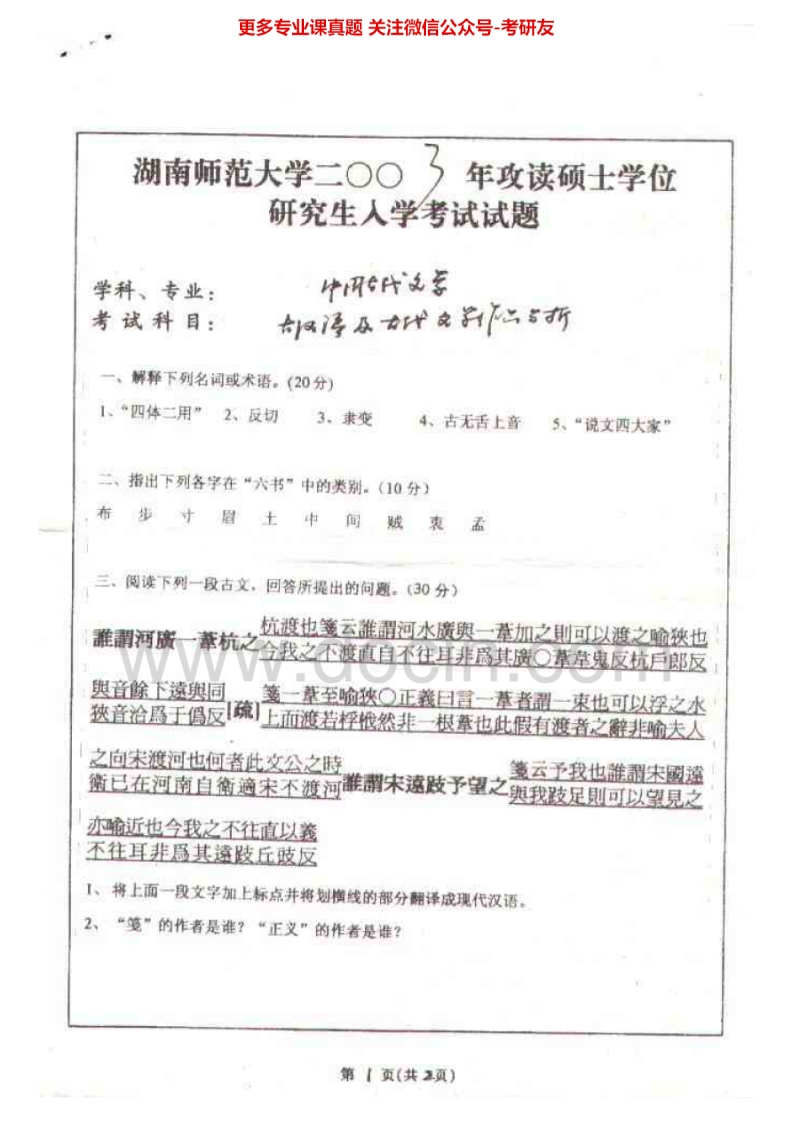 更多专业课真题 关注微信公众号-考研友
湖南师范大学二〇〇3年攻读硕士学位
研究生入学考试试题
学科、专业: 中国古代文学
考试科目: 古汉语及古代文学作品分析
一、解释下列名词或术语。(20分)
1、“四体二用” 2、反切 3、隶变 4、古无舌上音 5、“说文四大家”
二、指出下列各字在“六书”中的类别。(10分)
布 步 寸 眉 土 中 间 贼 衷 孟
三、阅读下列一段古文，回答所提出的问题。(30分)
誰謂河廣一葦杭之
杭渡也箋云誰謂河水廣與一葦加之則可以渡之喻狹也
今我之不渡直自不往耳非爲其廣〇葦韋鬼反杭戶郎反
與音餘下遠與同
狹音洽爲于僞反
[疏]
箋一葦至喻狹〇正義曰言一葦者謂一束也可以浮之水
上而渡若桴栰然非一根葦也此假有渡者之辭非喻夫人
之向宋渡河也何者此文公之時
衛已在河南自衛適宋不渡河
誰謂宋遠跂予望之
箋云予我也誰謂宋國遠
與我跂足則可以望見之
亦喻近也今我之不往直以義
不往耳非爲其遠跂丘豉反
1、将上面一段文字加上标点并将划横线的部分翻译成现代汉语。
2、“笺”的作者是谁？“正义”的作者是谁？
www.docin.com
第 1 页(共 2页)